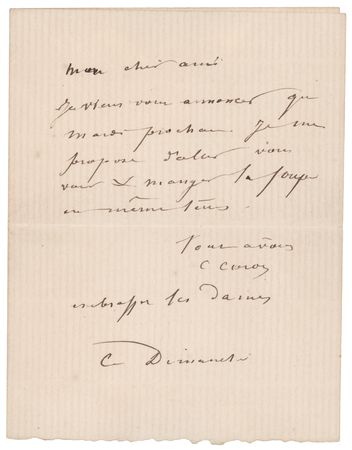 mon cher ami
Je viens vous annoncer que
mardi prochain Je me
propose d'aller vous
voir & manger la soupe
en même tems.
Tout à vous
C Corot
embrasser les dames
Ce Dimanche